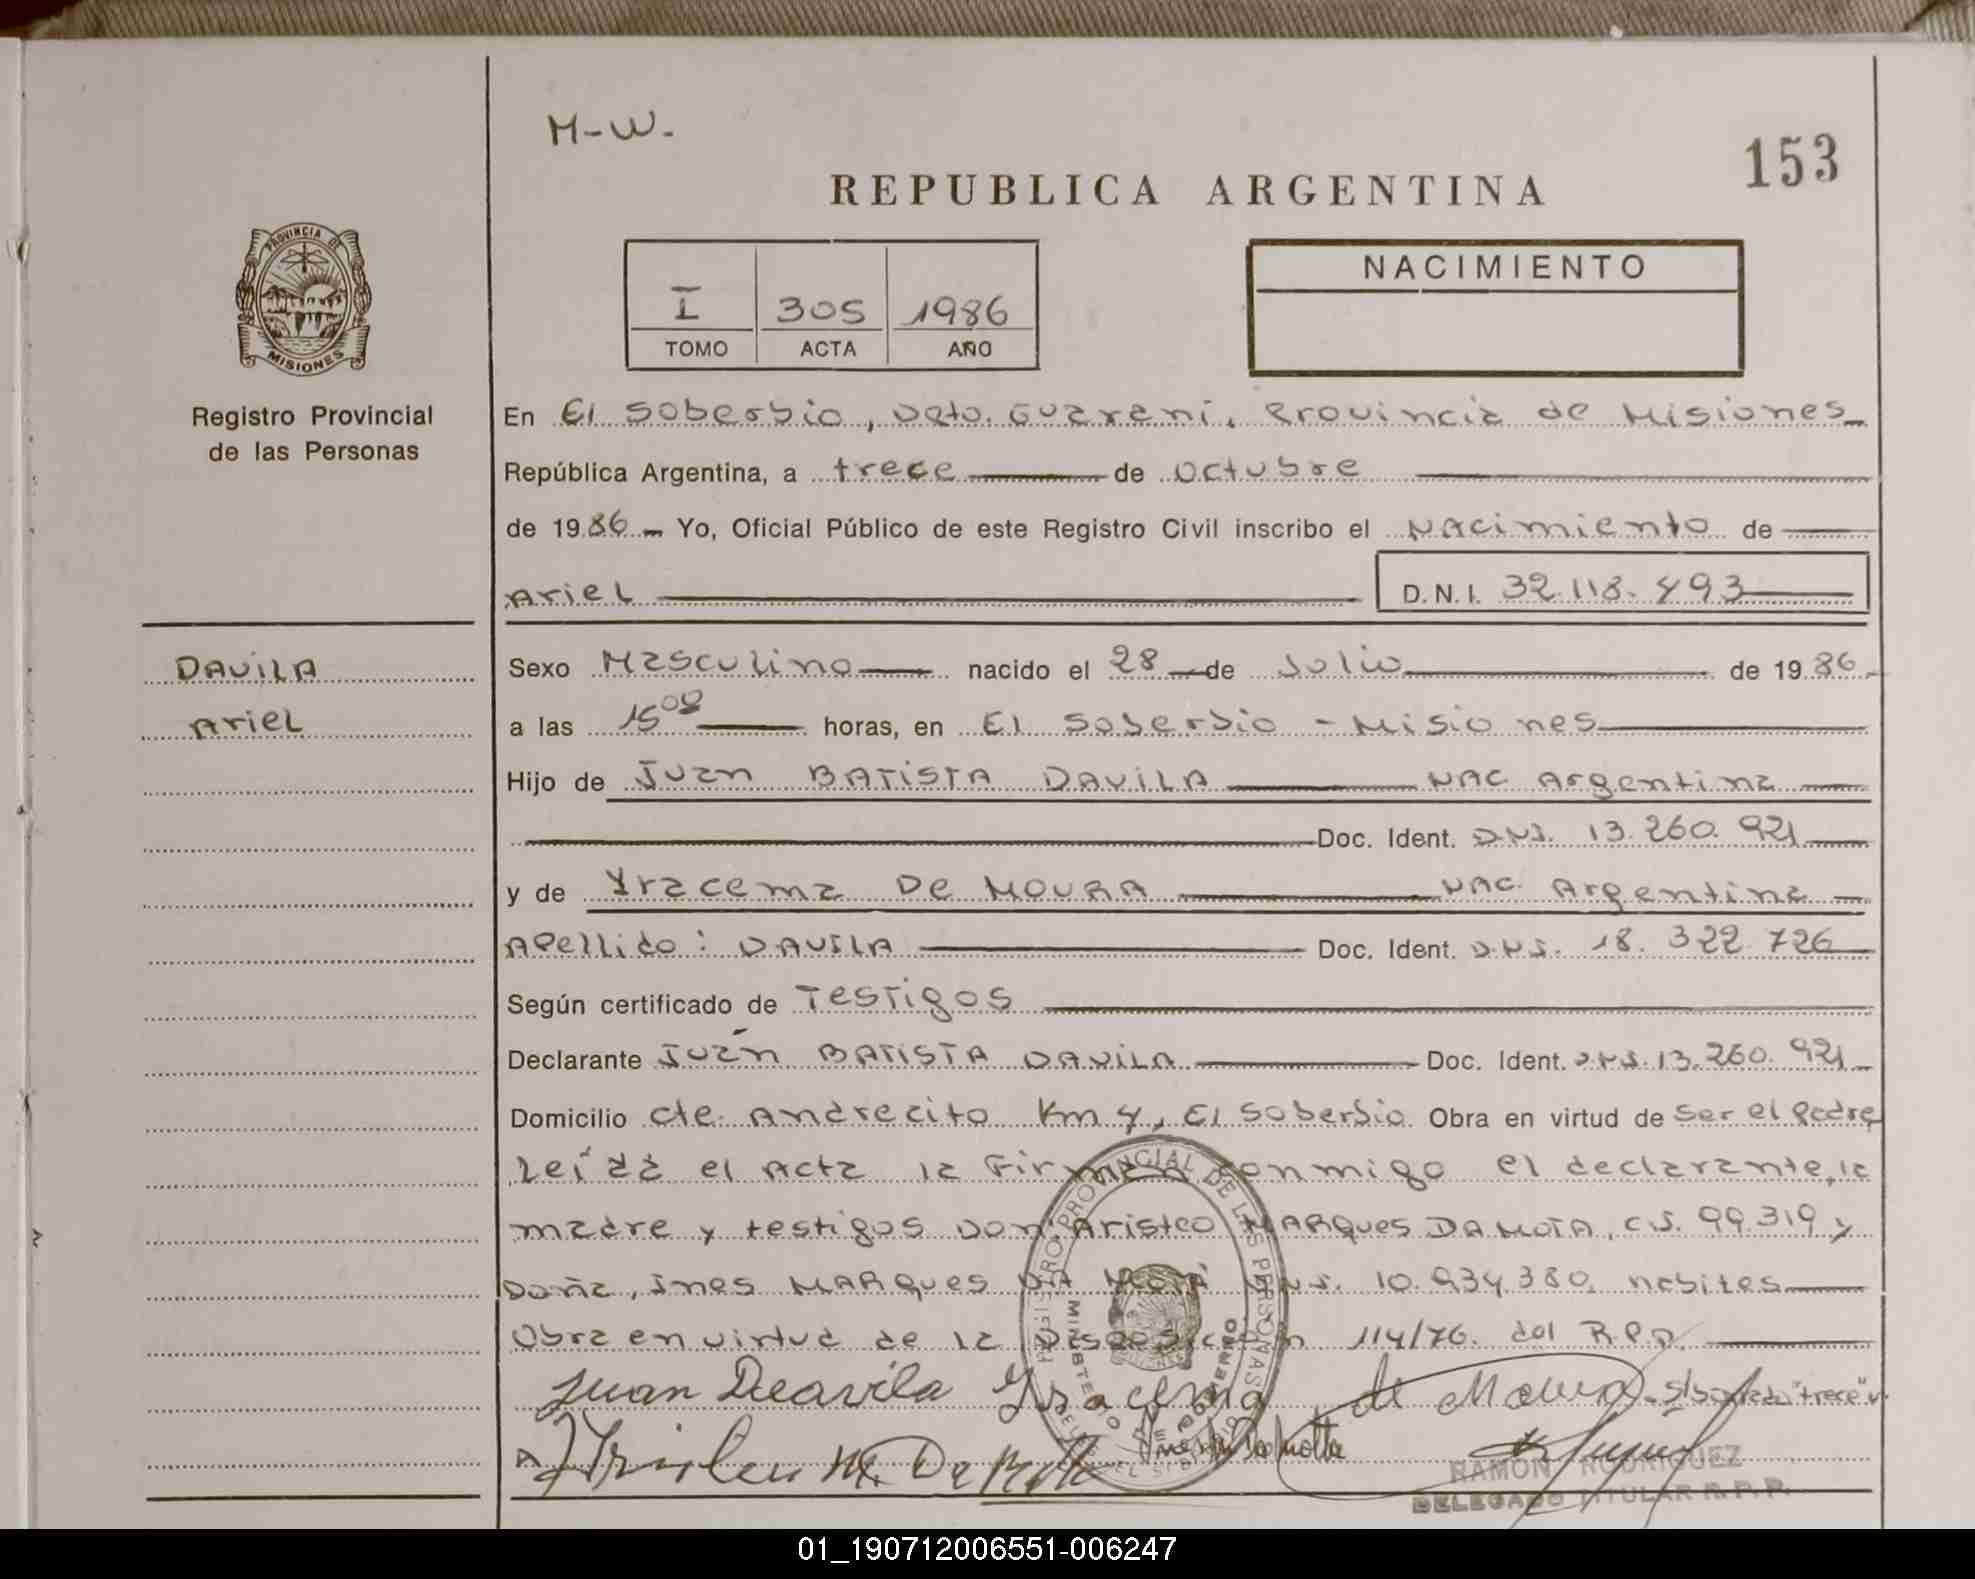 M-W.
153
REPUBLICA ARGENTINA
PROVINCIA DE
MISIONES
I 305 1986
TOMO ACTA AÑO
NACIMIENTO
Registro Provincial
de las Personas
En El Soberbio, Dpto. Guaraní, Provincia de Misiones
República Argentina, a trece de octubre
de 1986 Yo, Oficial Público de este Registro Civil inscribo el Nacimiento de
Ariel D.N.I. 32.118.493
DAVILA
Ariel
Sexo Masculino nacido el 28 de Julio de 1986
a las 15 00 horas, en El Soberbio - Misiones
Hijo de Juan BATISTA DAVILA NAC Argentina
Doc. Ident. D.N.I. 13.260.921
y de Yracema DE MOURA NAC. Argentina
Apellido: DAVILA Doc. Ident. D.N.I. 18.322.726
Según certificado de Testigos
Declarante Juan BATISTA DAVILA Doc. Ident. D.N.I. 13.260.921
Domicilio Cte. Andrecito Km 4, El Soberbio Obra en virtud de ser el padre
Leída el Acta la Firman conmigo el declarante, la
madre y testigos Don: Aristeo MARQUES DA MOTA, C.I. 99.319 y
Doña, Ines MARQUES DA MOTA D.N.I. 10.934.380, habiles
Obra en virtud de la Disposición 114/76. del R.P.P.
REGISTRO PROVINCIAL DE LAS PERSONAS
MINISTERIO DE GOBIERNO
Juan Deavila Yracema de Moura S/borrado "trece" v.
Da Motta
RAMON RODRIGUEZ
DELEGADO TITULAR R.P.P.
01_190712006551-006247